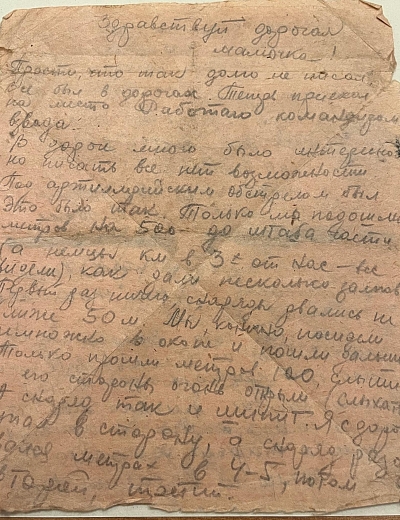 Здравствуй дорогая
мамочка!
Прости, что так долго не писал
был в дороге. Теперь приехал
на место Работаю командиром
взвода.
В дороге много было интересного
но писать все нет возможности
Под артиллерийским обстрелом был
Это было так. Только мы подошли
метров на 500 до штаба части
(а немцы км в 3х от нас – все
видели), как дали несколько залпов
Первый раз ничего снаряды рвались не
ближе 50 м. Мы, конечно, посидели
немножко в окопе и пошли дальше
Только прошли метров 100, слышим
с его стороны огонь открыли (слыхать
А снаряд так и шипит. Я с дороги
в сторону, а снаряд
метрах в 4-5, потом
третий.